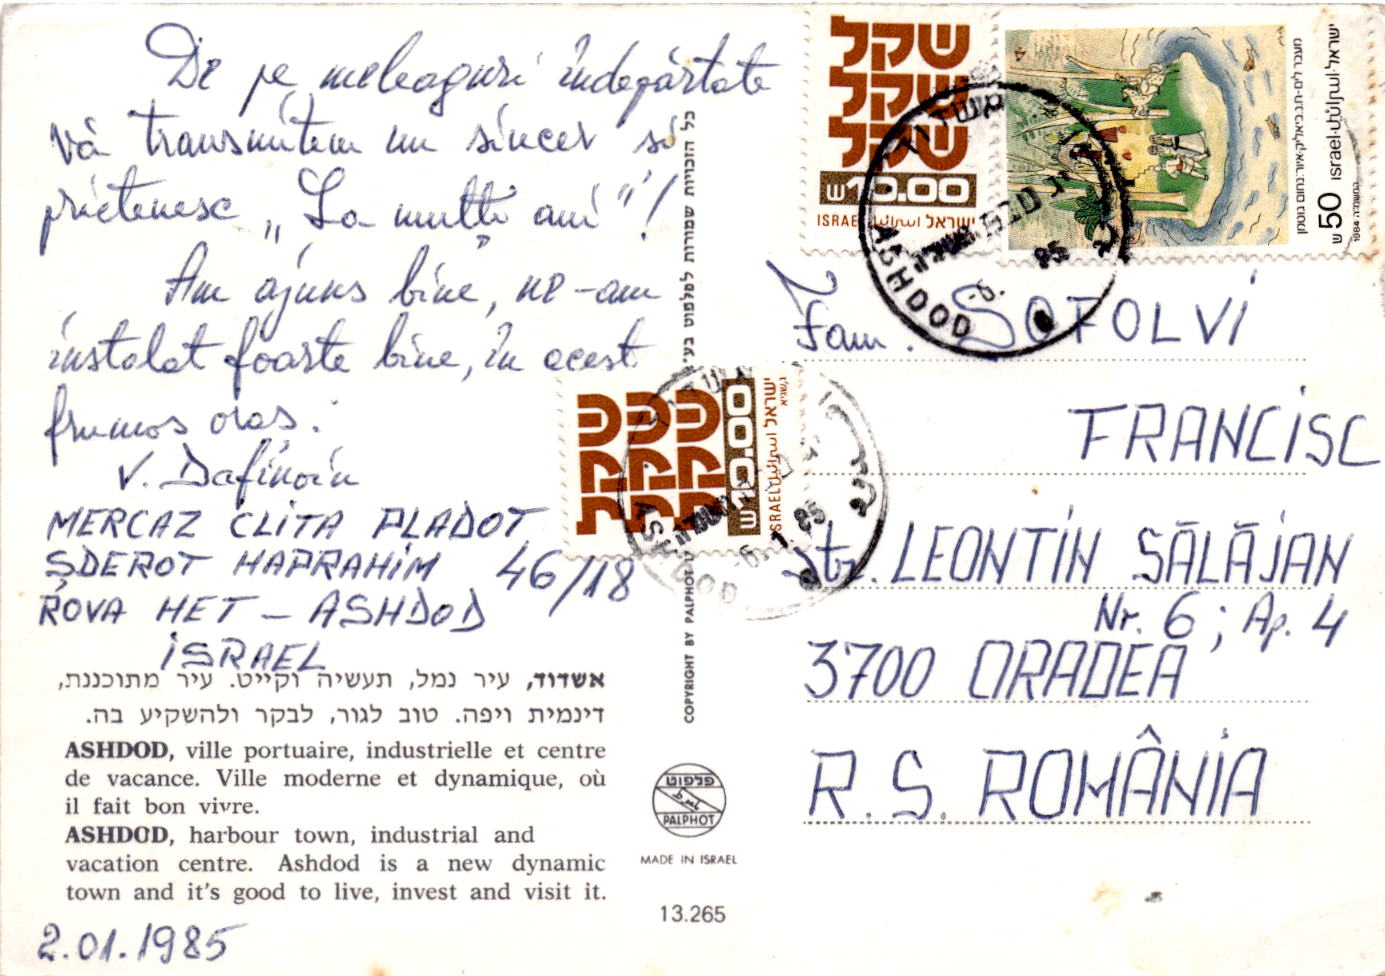 De pe meleaguri îndepărtate
vă transmitem un sincer și
prietenesc „La mulți ani"!
Am ajuns bine, ne-am
instalat foarte bine, în acest
frumos oraș.
V. Dafinoiu
MERCAZ CLITA PLADOT
SDEROT HAPRAHIM 46/18
ROVA HET – ASHDOD
ISRAEL
אשדוד, עיר נמל, תעשיה וקייט. עיר מתוכננת,
דינמית ויפה. טוב לגור, לבקר ולהשקיע בה.
ASHDOD, ville portuaire, industrielle et centre
de vacance. Ville moderne et dynamique, où
il fait bon vivre.
ASHDOD, harbour town, industrial and
vacation centre. Ashdod is a new dynamic
town and it's good to live, invest and visit it.
2.01.1985
כל הזכויות שמורות לפלפוט בע״מ
COPYRIGHT BY PALPHOT
פלפוט
PALPHOT
MADE IN ISRAEL
13.265
שקל
שקל
שקל
10.00
ISRAEL ישראל
ישראל israel
50
1984
אשדוד
ASHDOD
85
שקל
שקל
שקל
10.00
ISRAEL ישראל
ASHDOD
6.1.85
Fam. SOFOLVI
FRANCISC
str. LEONTIN SĂLĂJAN
Nr. 6; Ap. 4
3700 ORADEA
R. S. ROMÂNIA